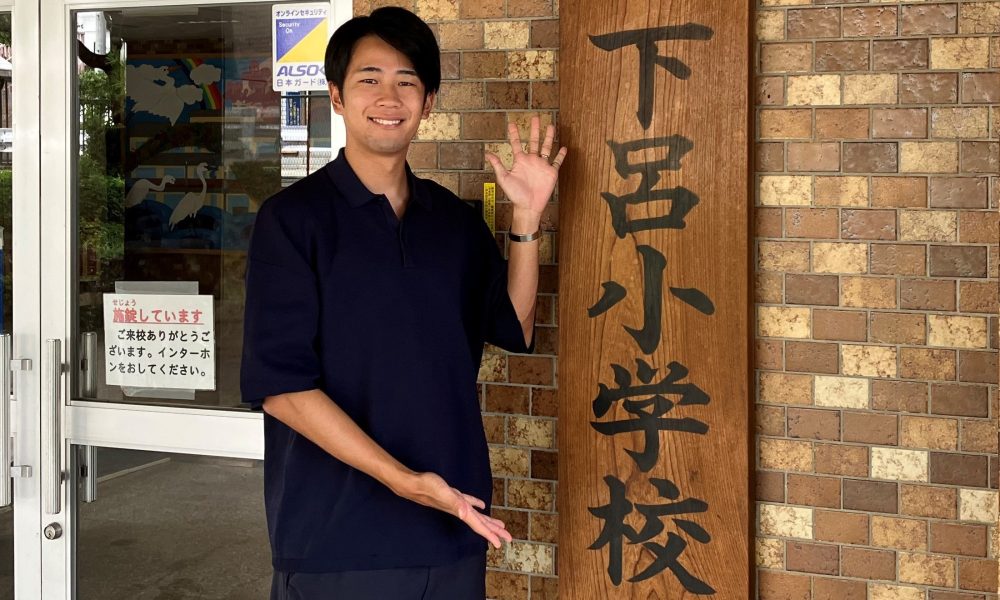 オンラインセキュリティ
Security
On
ALSOK
日本ガード㈱
せじょう
施錠しています
ご来校ありがとうご
ざいます。インターホ
ンをおしてください。
下呂小学校